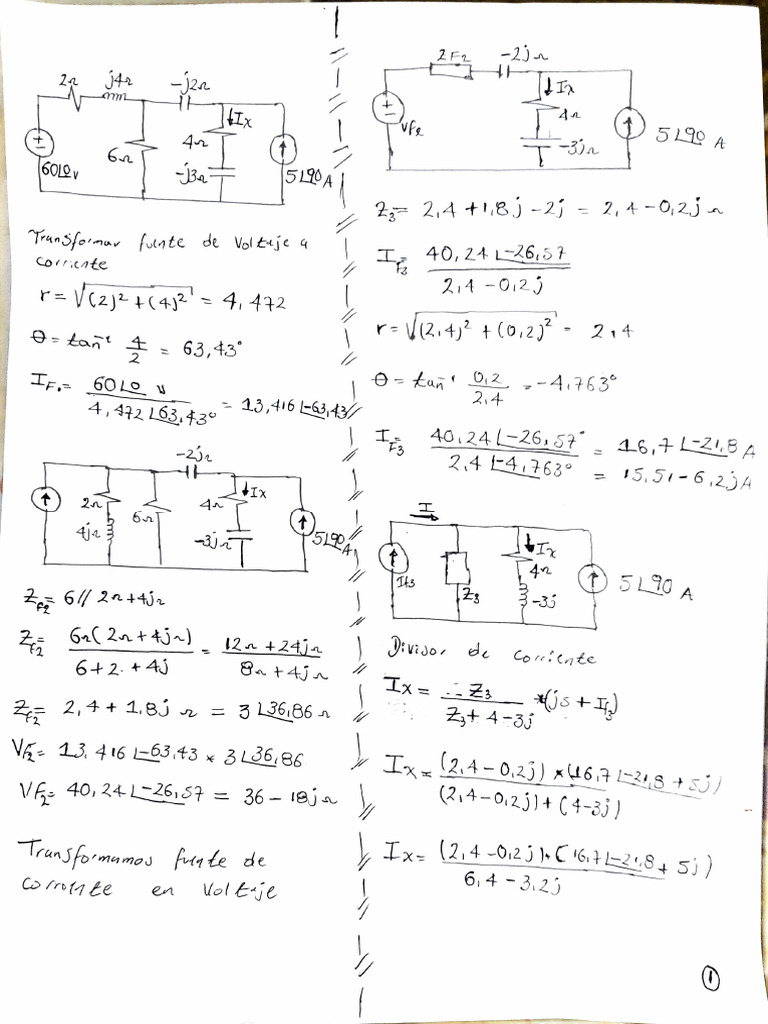 2Ω j4Ω -j2Ω
Ix
4Ω
6Ω
-j3Ω
60∠0 v
5∠90 A
Transformar fuente de Voltaje a
corriente
r = √(2)² + (4)² = 4,472
θ = tan⁻¹ 4/2 = 63,43°
IF₁ = 60∠0 v / 4,472∠63,43° = 13,416∠-63,43
-2jΩ
Ix
2Ω 6Ω 4Ω
4jΩ -3jΩ
5∠90 A
Zf2 = 6 // 2Ω+4jΩ
Zf2 = 6Ω(2Ω+4jΩ) / 6+2+4j = 12Ω+24jΩ / 8Ω+4jΩ
Zf2 = 2,4 + 1,8j Ω = 3∠36,86 Ω
Vf2 = 13,416∠-63,43 * 3∠36,86
VF2 = 40,24∠-26,57 = 36-18jΩ
Transformamos fuente de
corriente en Voltaje
ZF2 -2jΩ
Ix
4Ω
VF2
-3jΩ
5∠90 A
Z3 = 2,4 + 1,8j - 2j = 2,4 - 0,2j Ω
IF3 = 40,24∠-26,57 / 2,4 - 0,2j
r = √(2,4)² + (0,2)² = 2,4
θ = tan⁻¹ 0,2/2,4 = -4,763°
IF3 = 40,24∠-26,57° / 2,4∠-4,763° = 16,7∠-21,8 A
= 15,51-6,2j A
I
Ix
4Ω
If3 Z3 -3j
5∠90 A
Divisor de corriente
Ix = Z3 / Z3+4-3j *(js + If3)
Ix = (2,4-0,2j) * (16,7∠-21,8 + 5j) / (2,4-0,2j)+(4-3j)
Ix = (2,4-0,2j)*(16,7∠-21,8 + 5j) / 6,4-3,2j
1